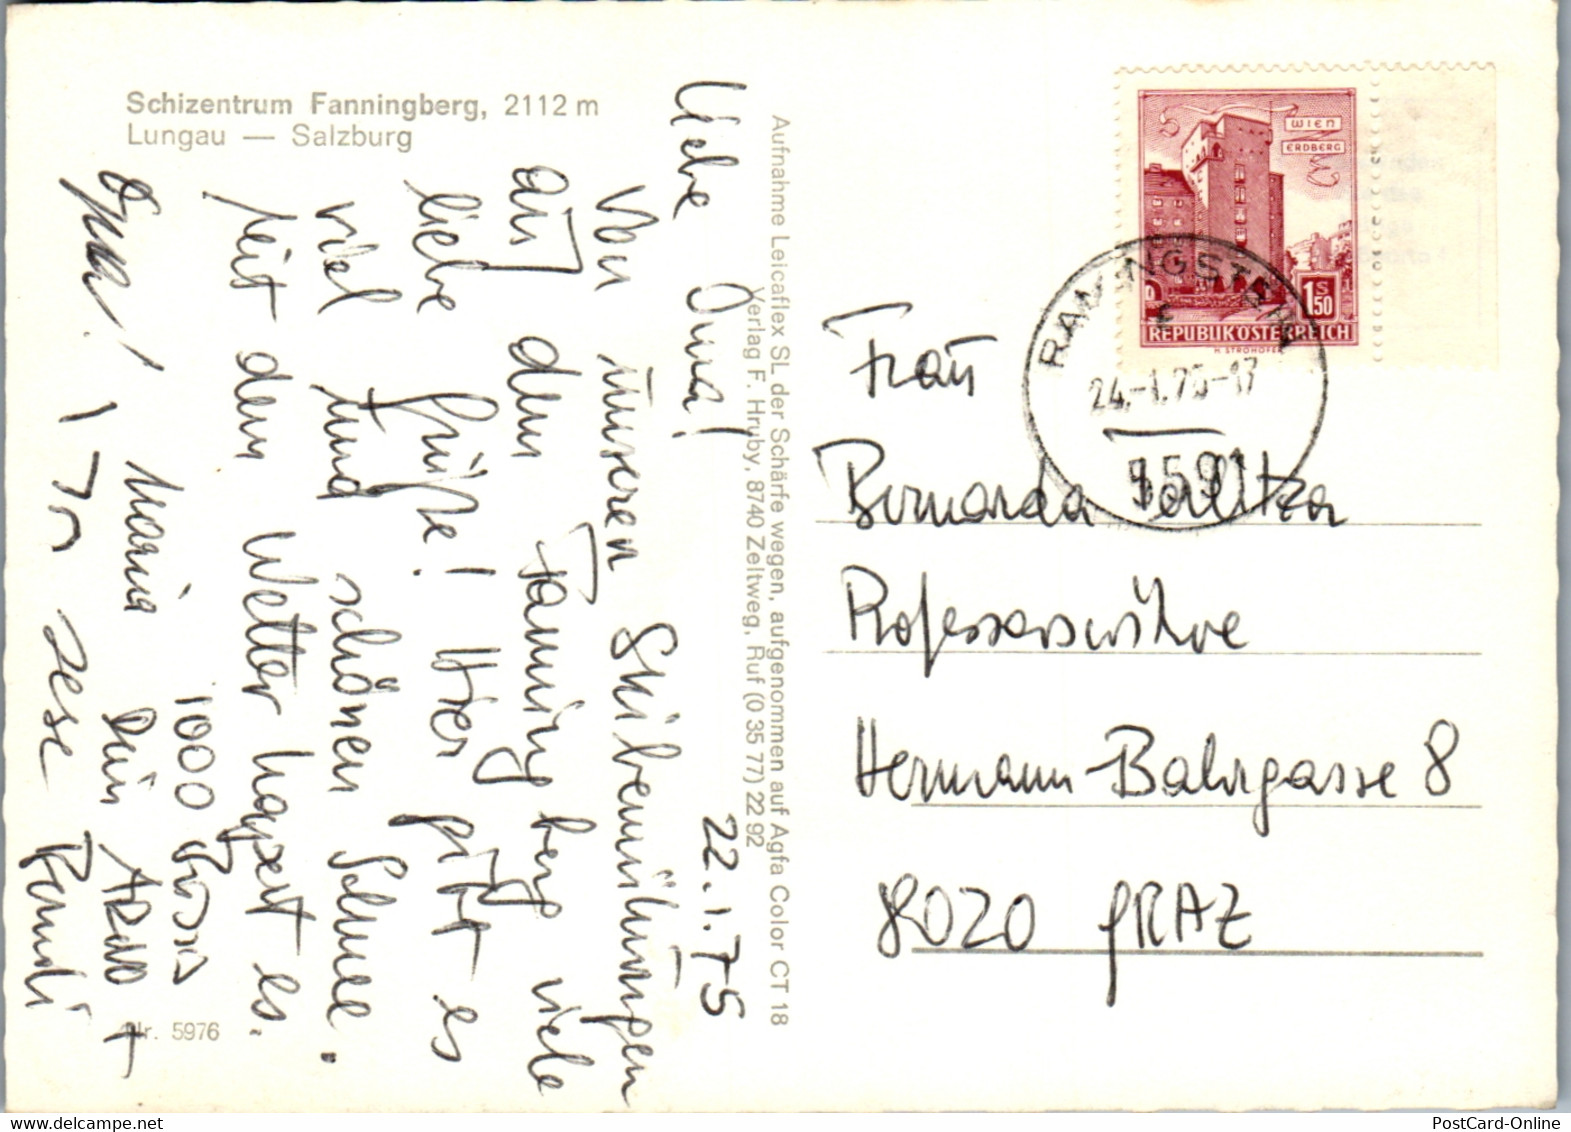 Schizentrum Fanningberg, 2112 m
Lungau — Salzburg
22.1.75
Liebe Oma!
Von unseren Skibemühungen
aus dem Fanningberg viele
liebe Grüße! Hier gibt es
viel und schönen Schnee.
Mit dem Wetter hapert es.
1000 Bussis
Dein Arno +
Maria
Nr. 5976
Aufnahme Leicaflex SL der Schärfe wegen, aufgenommen auf Agfa Color CT 18
Verlag F. Hruby, 8740 Zeltweg, Ruf (0 35 77) 22 92
WIEN
ERDBERG
1 S 50
REPUBLIK ÖSTERREICH
H. STROHOFER
RAMINGSTEIN
24.-1.75-17
5591
Frau
Bernarda
Professorswitwe
Hermann-Bahrgasse 8
8020 GRAZ
PostCard-Online